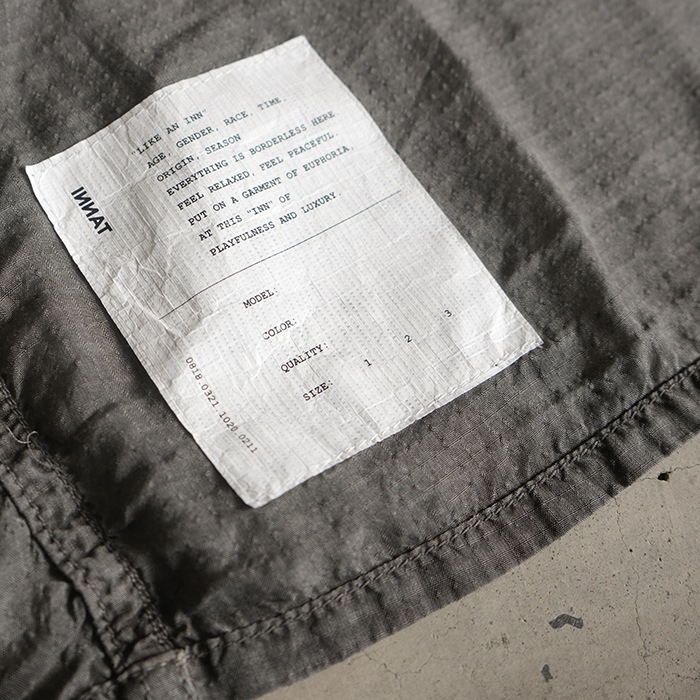 "LIKE AN INN"
AGE, GENDER, RACE, TIME,
ORIGIN, SEASON
EVERYTHING IS BORDERLESS HERE
FEEL RELAXED, FEEL PEACEFUL.
PUT ON A GARMENT OF EUPHORIA,
AT THIS "INN" OF
PLAYFULNESS AND LUXURY.
INNAT
MODEL:
COLOR:
QUALITY:
SIZE: 1 2 3
0818 0321 1020 0211